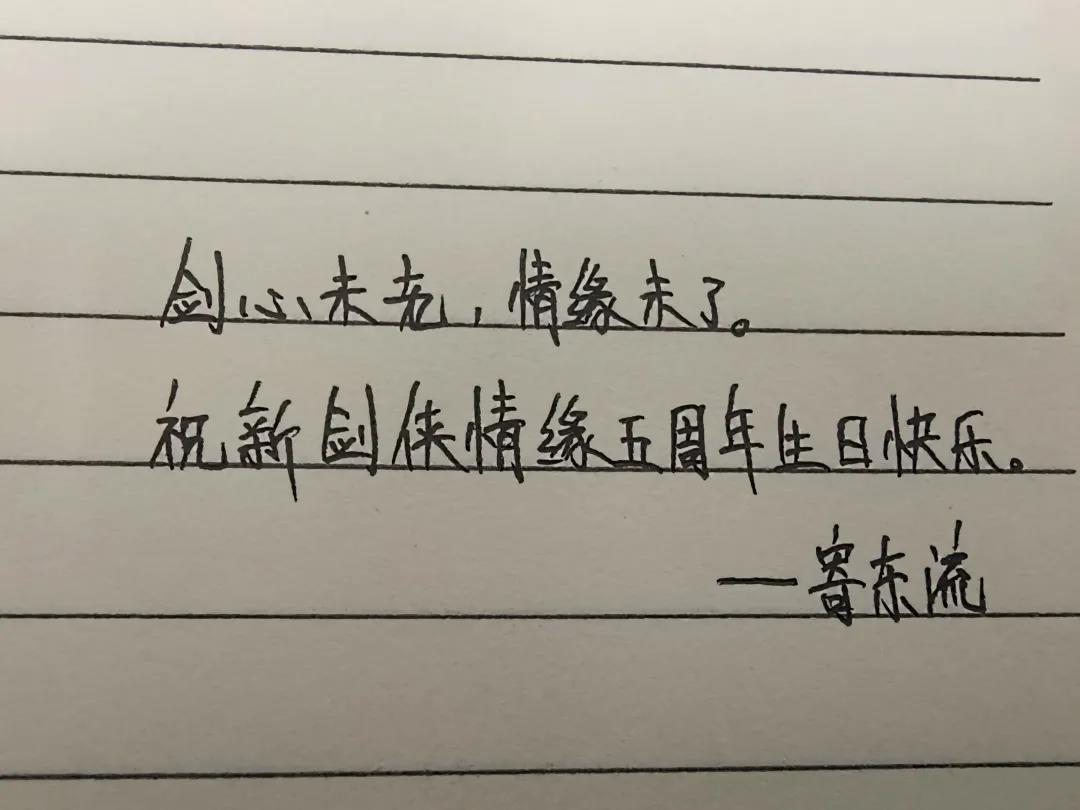 剑心未老，情缘未了。
祝新剑侠情缘五周年生日快乐。
—寄东流